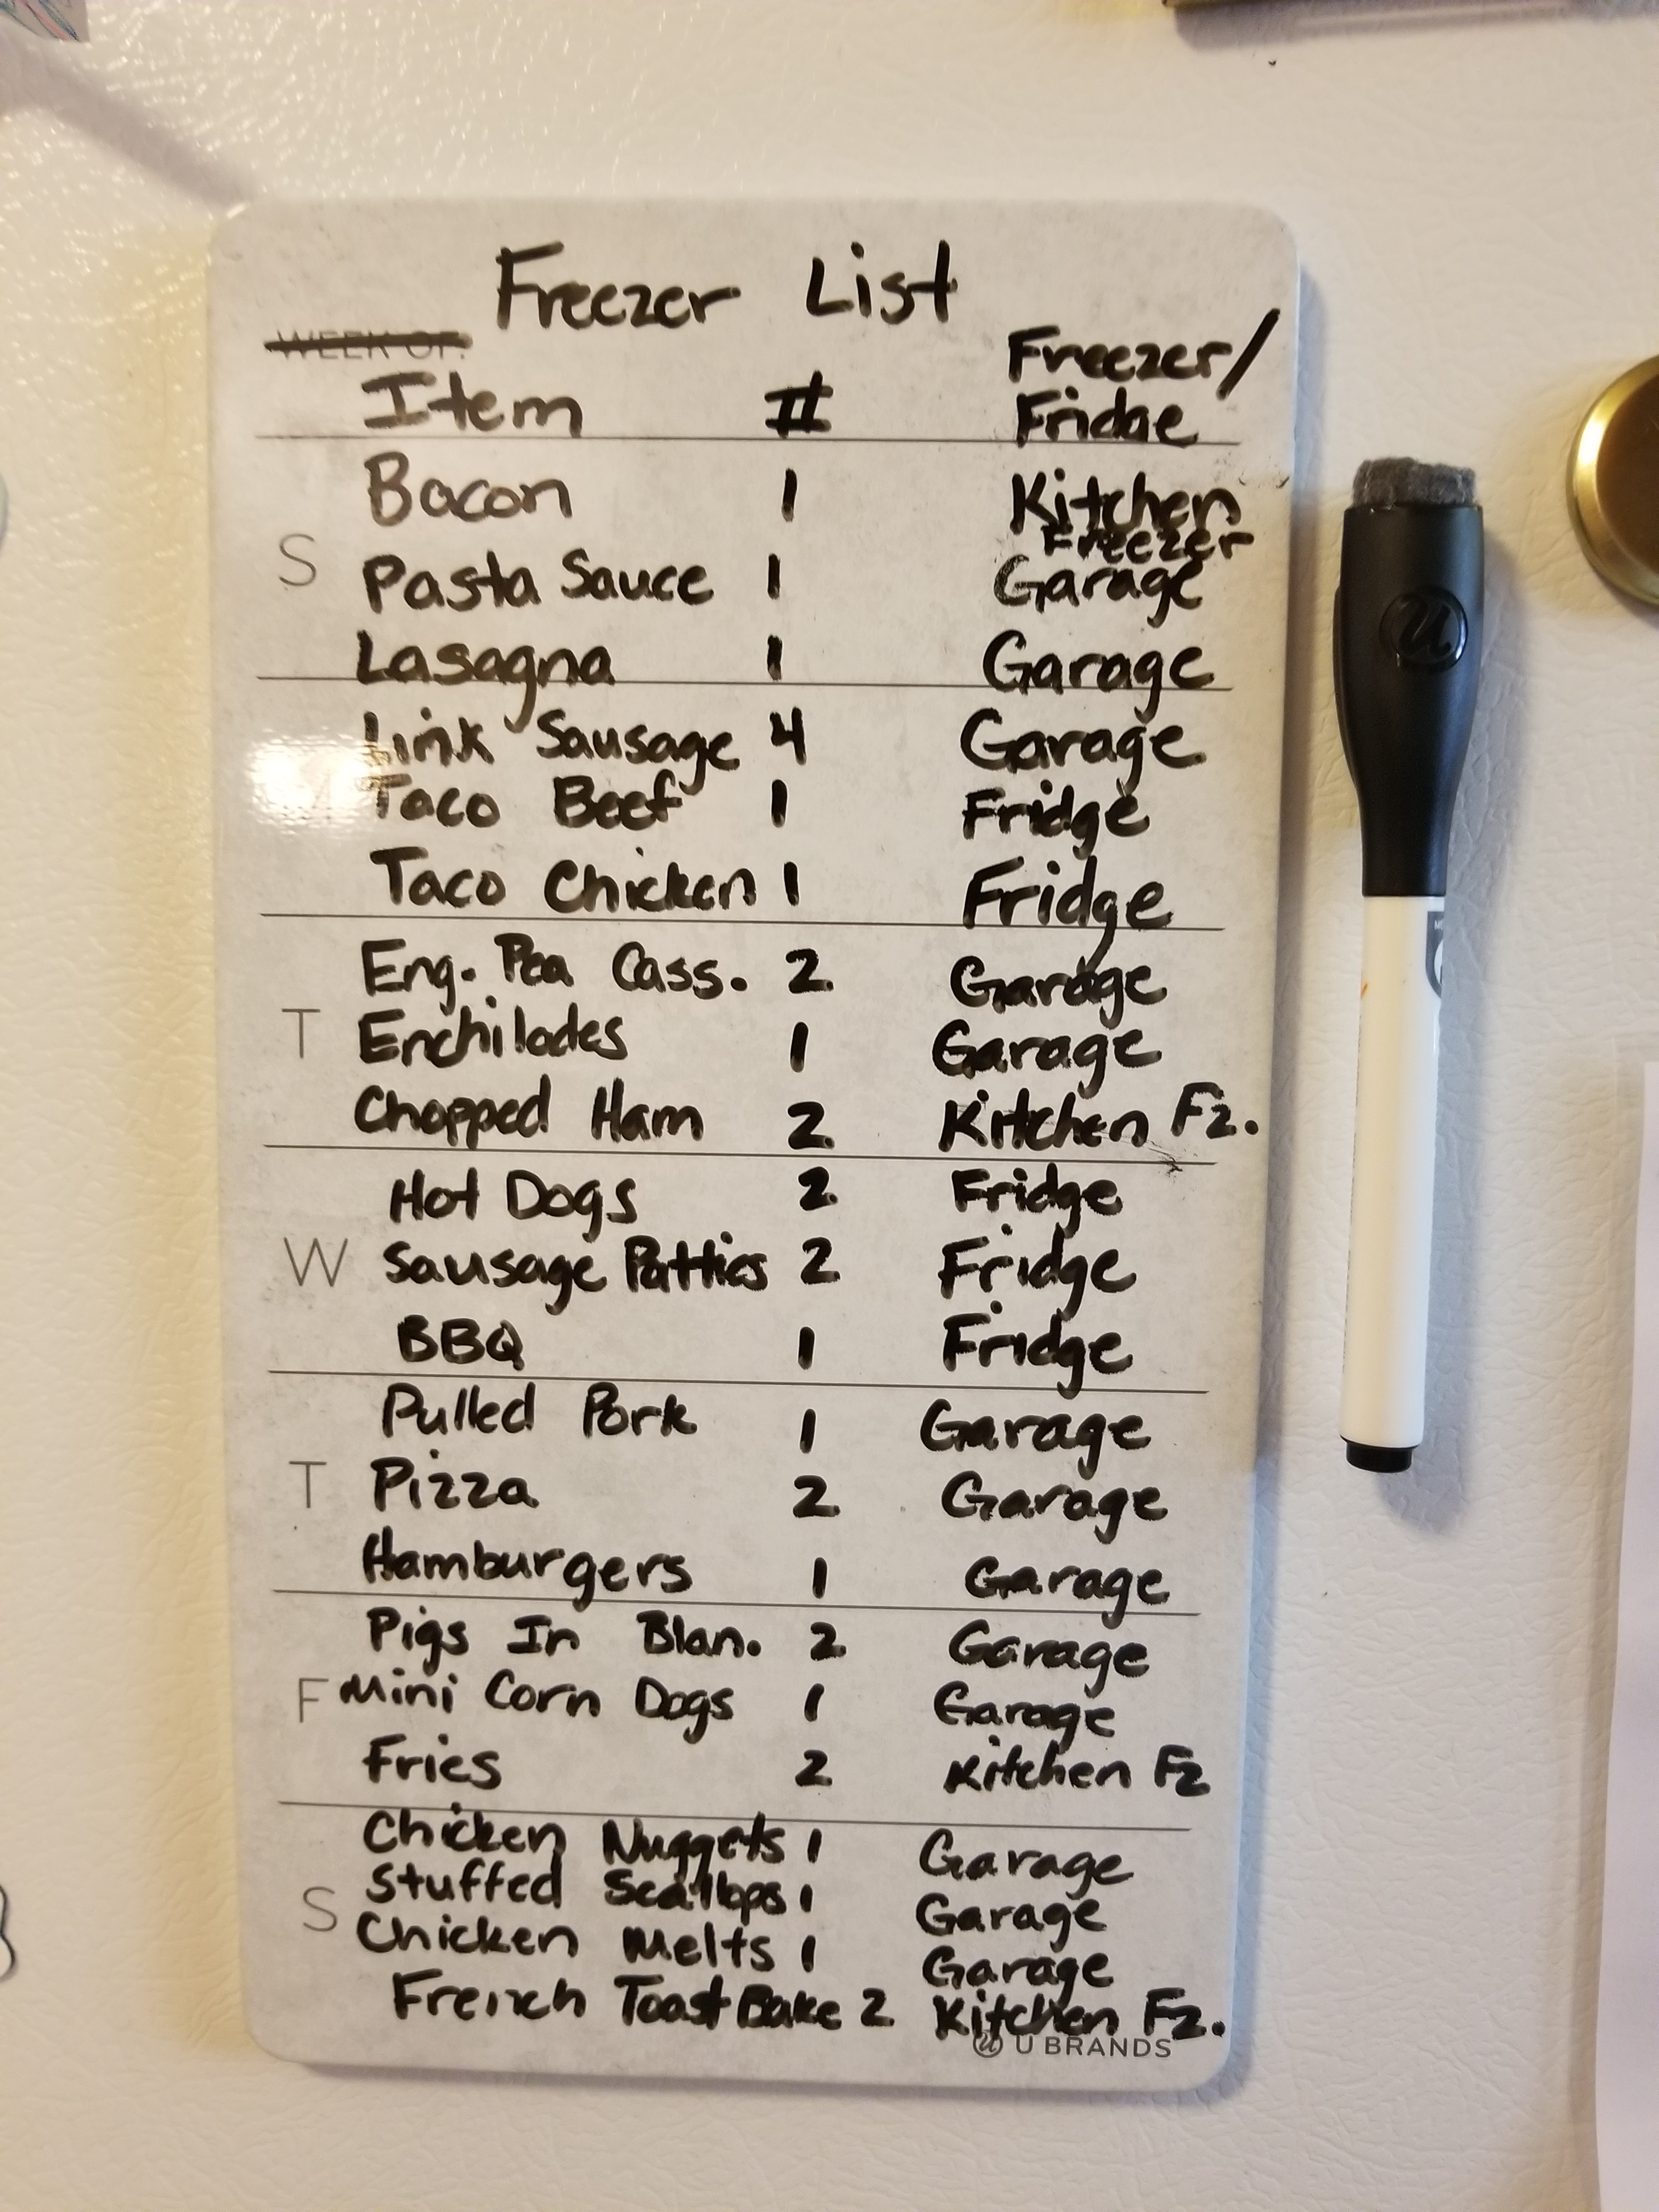 Freezer List
WEEK OF:
Freezer/
Item # Fridge
Bacon 1 Kitchen
Freezer
S Pasta Sauce 1 Garage
Lasagna 1 Garage
Link Sausage 4 Garage
M Taco Beef 1 Fridge
Taco Chicken 1 Fridge
Eng. Pea Cass. 2 Garage
T Enchilades 1 Garage
Chopped Ham 2 Kitchen Fz.
Hot Dogs 2 Fridge
W Sausage Patties 2 Fridge
BBQ 1 Fridge
Pulled Pork 1 Garage
T Pizza 2 Garage
Hamburgers 1 Garage
Pigs In Blan. 2 Garage
F Mini Corn Dogs 1 Garage
Fries 2 Kitchen Fz
Chicken Nuggets 1 Garage
Stuffed Scallops 1 Garage
S Chicken Melts 1 Garage
French Toast Bake 2 Kitchen Fz.
u U BRANDS
u